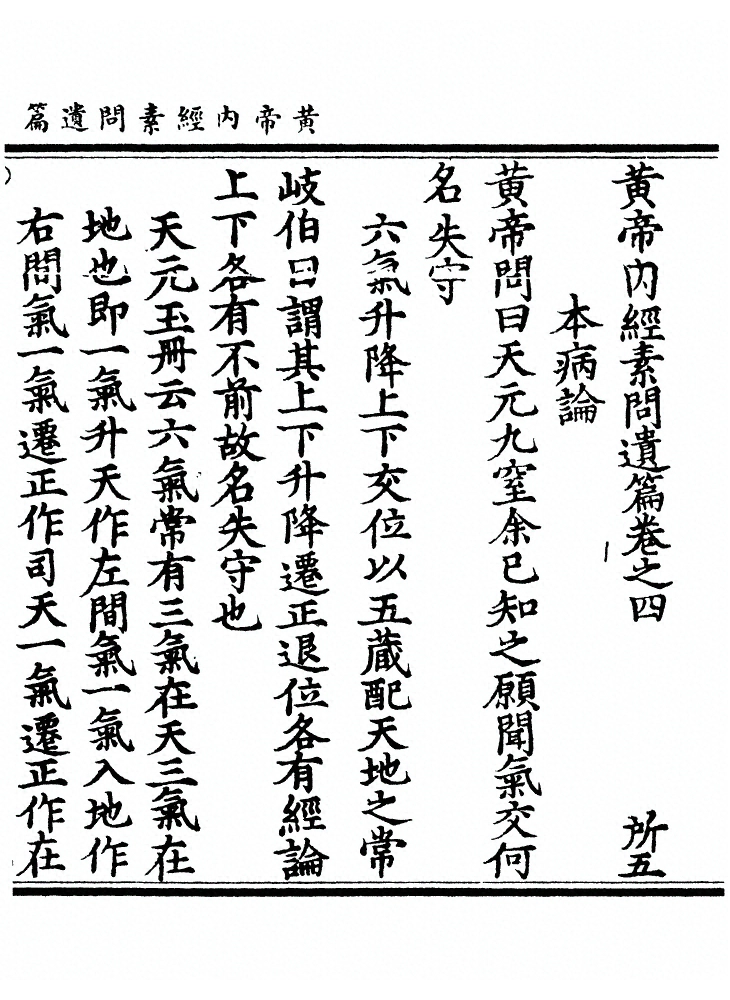 黃帝內經素問遺篇
黃帝內經素問遺篇卷之四 所五
本病論
黃帝問曰天元九窒余已知之願聞氣交何
名失守
六氣升降上下交位以五藏配天地之常
岐伯曰謂其上下升降遷正退位各有經論
上下各有不前故名失守也
天元玉冊云六氣常有三氣在天三氣在
地也即一氣升天作左間氣一氣入地作
右間氣一氣遷正作司天一氣遷正作在